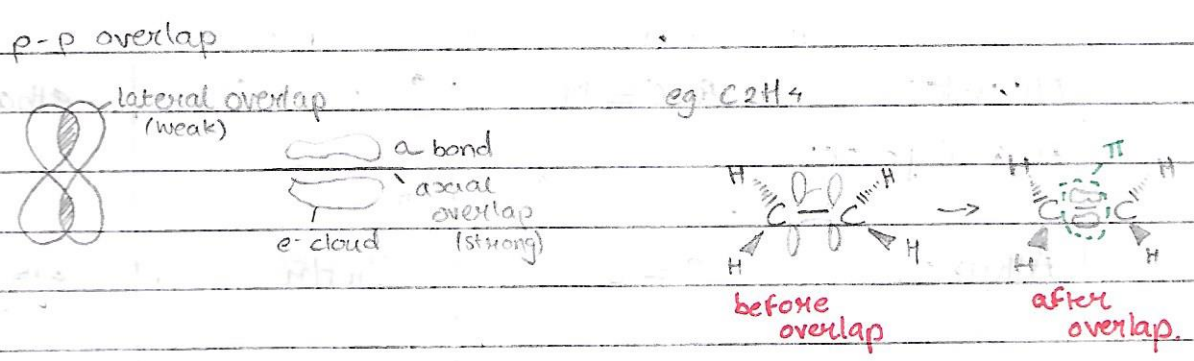 p-p overlap
lateral overlap
(weak)
a bond
axial
overlap
(strong)
e- cloud
eg: C2H4
H H
C C
H H
before
overlap
π
H H
C C
H H
after
overlap.